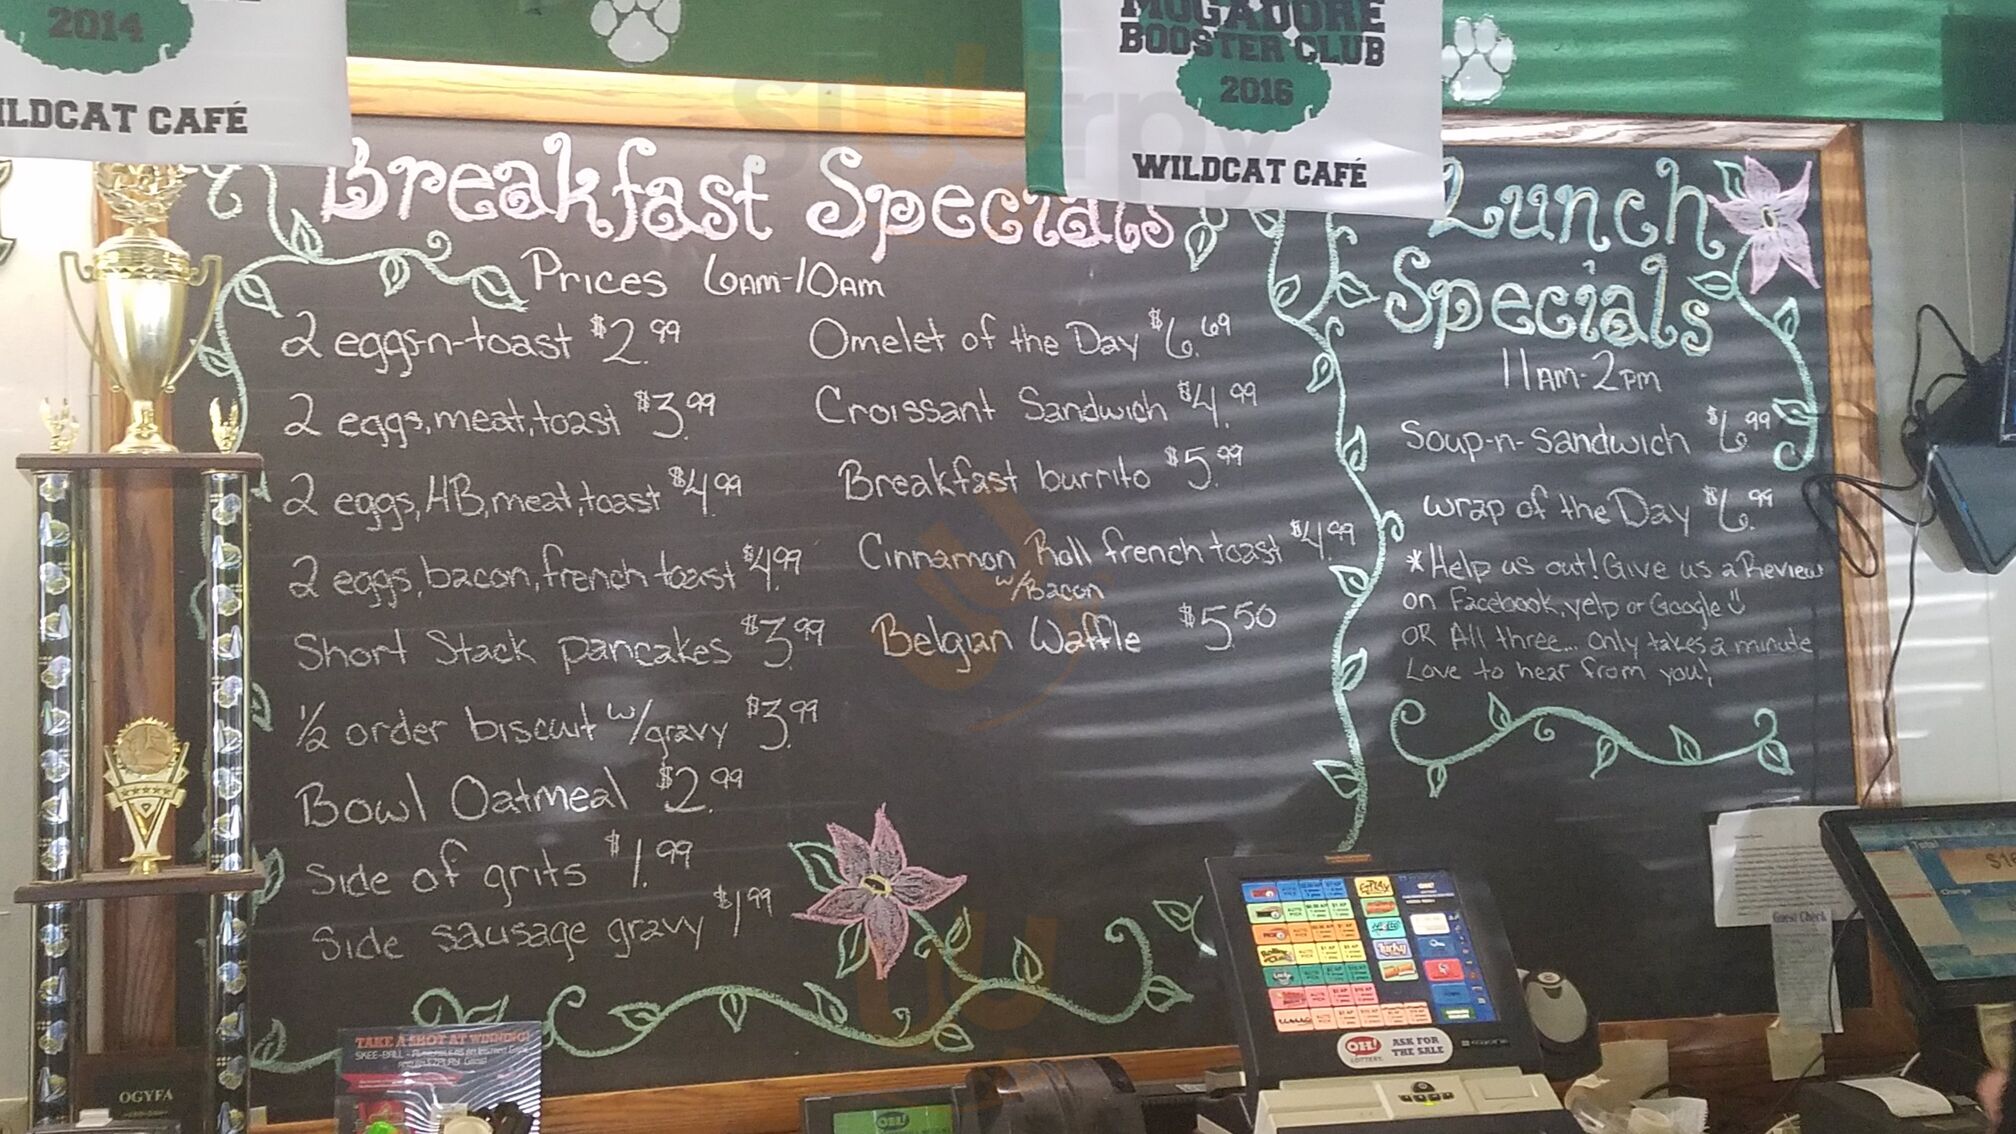 2014
WILDCAT CAFÉ
MOGADORE
BOOSTER CLUB
2016
WILDCAT CAFÉ
Breakfast Specials
Prices 6AM-10AM
2 eggs-n-toast $2.99
2 eggs, meat, toast $3.99
2 eggs, HB, meat, toast $4.99
2 eggs, bacon, french toast $4.99
Short Stack pancakes $3.99
1/2 order biscuit w/gravy $3.99
Bowl Oatmeal $2.99
Side of grits $1.99
Side sausage gravy $1.99
Omelet of the Day $6.69
Croissant Sandwich $4.99
Breakfast burrito $5.99
Cinnamon Roll french toast $4.99
w/Bacon
Belgian Waffle $5.50
Lunch
Specials
11AM-2PM
Soup-n-Sandwich $6.99
Wrap of the Day $6.99
*Help us out! Give us a Review
on Facebook, yelp or Google
OR All three... Only takes a minute
Love to hear from you!
TAKE A SHOT AT WINNING!
OGYFA
OH!
LOTTERY.
ASK FOR
THE SALE
Guest Check
Total
Change
OH!
Slurrpy